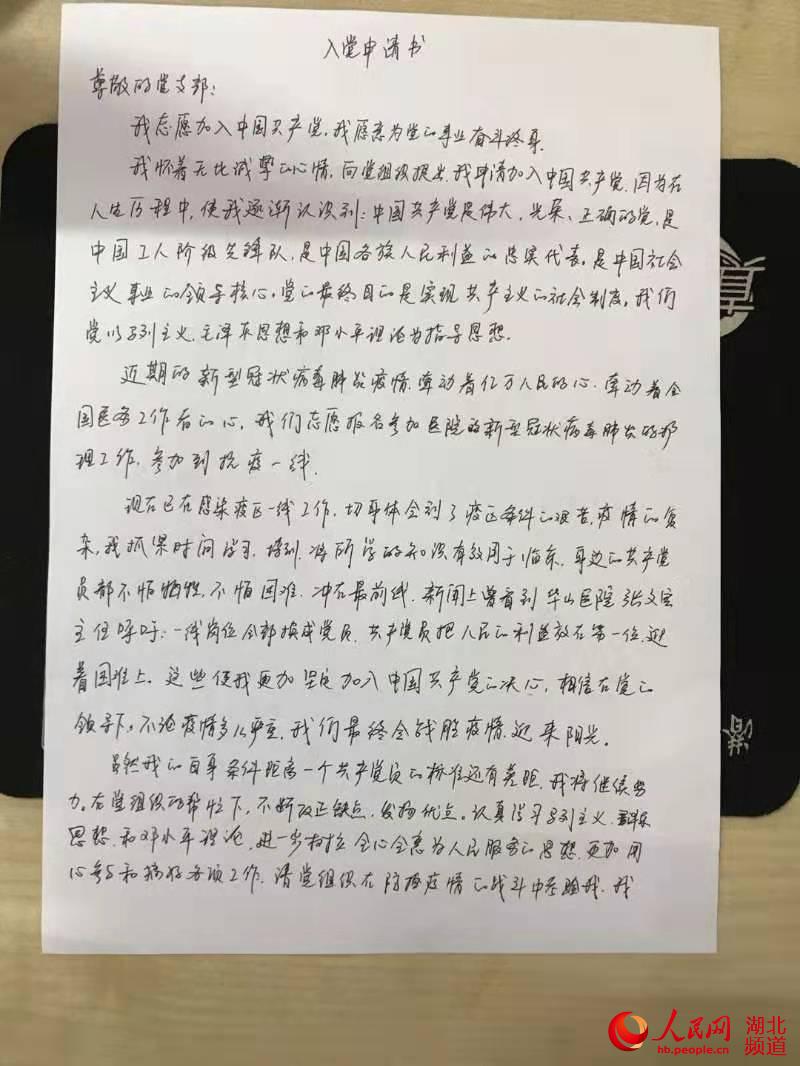 入党申请书
尊敬的党支部：
我志愿加入中国共产党，我愿意为党的事业奋斗终身.
我怀着无比诚挚的心情，向党组织提出，我申请加入中国共产党，因为在
人生历程中，使我逐渐认识到：中国共产党是伟大，光荣、正确的党，是
中国工人阶级先锋队，是中国各族人民利益的忠实代表，是中国社会
主义事业的领导核心。党的最终目的是实现共产主义的社会制度。我们
党以马列主义.毛泽东思想和邓小平理论为指导思想.
近期的新型冠状病毒肺炎疫情.牵动着亿万人民的心.牵动着全
国医务工作者的心，我们志愿报名参加医院的新型冠状病毒肺炎的护
理工作，参加到抗疫一线.
现在已在感染疫区一线工作，切身体会到了疫区条件的艰苦，疫情的复
杂，我抓保时间学习.培训.将所学的知识有效用于临床，身边的共产党
员都不怕牺牲，不怕困难.冲在最前线.新闻上曾看到华山医院张文宏
主任呼吁：一线岗位全部换成党员.共产党员把人民的利益放在第一位.迎
着困难上。这些使我更加坚定加入中国共产党的决心，相信在党的
领导下，不论疫情多么严重，我们最终会战胜疫情.迎来阳光。
虽然我的自身条件距离一个共产党员的标准还有差距.我将继续努
力。在党组织的帮忙下，不断改正缺点，发扬优点。认真学习马列主义.
思想.和邓小平理论，进一步树立全心全意为人民服务的思想.更加用
心参与和搞好各项工作.请党组织在防控疫情的战斗中考验我.我
直
港
人民网
hb.people.cn
湖北
频道